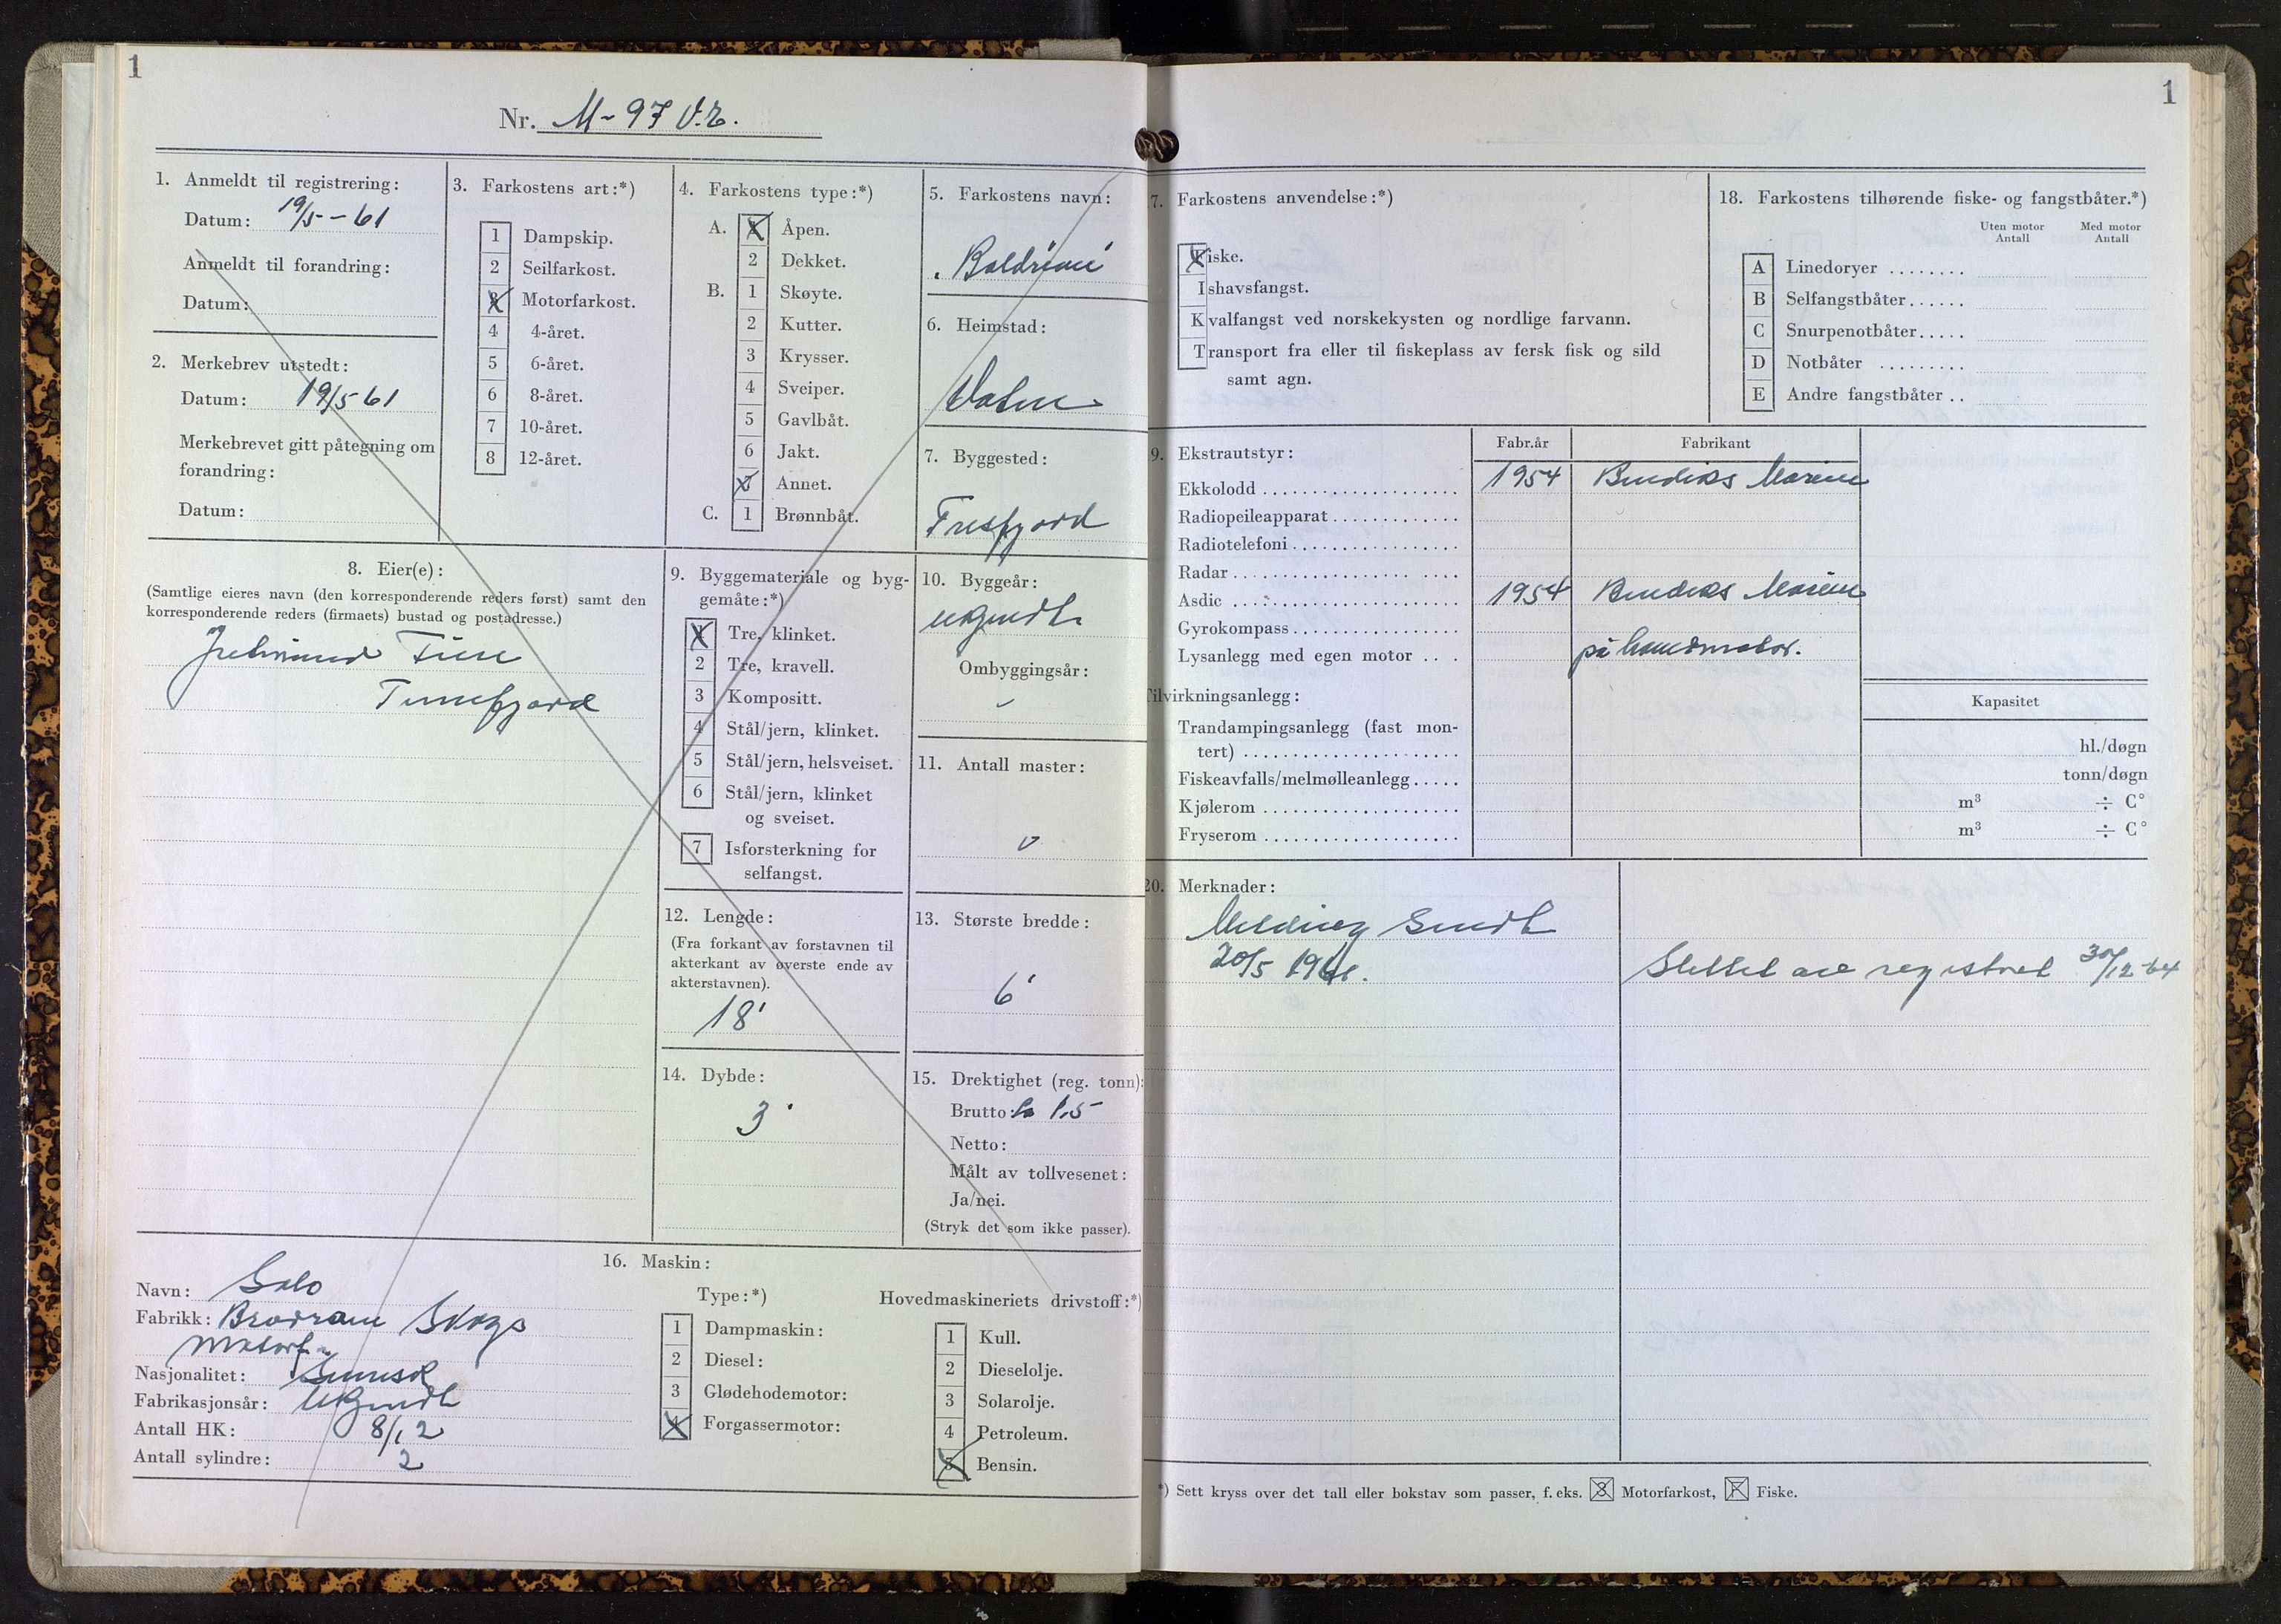 1
Nr. M-97 V.E.
1. Anmeldt til registrering:
Datum: 19/5-61
Anmeldt til forandring:
Datum:
2. Merkebrev utstedt:
Datum: 19/5 61
Merkebrevet gitt påtegning om
forandring:
Datum:
3. Farkostens art:*)
1 Dampskip.
2 Seilfarkost.
3 Motorfarkost.
4 4-året.
5 6-året.
6 8-året.
7 10-året.
8 12-året.
4. Farkostens type:*)
A. 1 Åpen.
2 Dekket.
B. 1 Skøyte.
2 Kutter.
3 Krysser.
4 Sveiper.
5 Gavlbåt.
6 Jakt.
7 Annet.
C. 1 Brønnbåt.
5. Farkostens navn:
6. Heimstad:
Vatne
7. Byggested:
Tresfjord
8. Eier(e):
(Samtlige eieres navn (den korresponderende reders først) samt den
korresponderende reders (firmaets) bustad og postadresse.)
9. Byggemateriale og byg-
gemåte:*)
1 Tre, klinket.
2 Tre, kravell.
3 Kompositt.
4 Stål/jern, klinket.
5 Stål/jern, helsveiset.
6 Stål/jern, klinket
og sveiset.
7 Isforsterkning for
selfangst.
10. Byggeår:
ukjendt
Ombyggingsår:
-
11. Antall master:
0
12. Lengde:
(Fra forkant av forstavnen til
akterkant av øverste ende av
akterstavnen).
18'
13. Største bredde:
6'
14. Dybde:
3'
15. Drektighet (reg. tonn):
Brutto: 1.5
Netto:
Målt av tollvesenet:
Ja/nei.
(Stryk det som ikke passer).
16. Maskin:
Navn: Solo
Fabrikk: Brødrane Skogs
Motorf.
Nasjonalitet: Svensk
Fabrikasjonsår: Ukjendt
Antall HK: 8/12
Antall sylindre: 2
Type:*)
1 Dampmaskin:
2 Diesel:
3 Glødehodemotor:
4 Forgassermotor:
Hovedmaskineriets drivstoff:*)
1 Kull.
2 Dieselolje.
3 Solarolje.
4 Petroleum.
5 Bensin.
1
7. Farkostens anvendelse:*)
Fiske.
Ishavsfangst.
Kvalfangst ved norskekysten og nordlige farvann.
Transport fra eller til fiskeplass av fersk fisk og sild
samt agn.
18. Farkostens tilhørende fiske- og fangstbåter.*)
Uten motor Med motor
Antall Antall
A Linedoryer ........
B Selfangstbåter......
C Snurpenotbåter.....
D Notbåter .........
E Andre fangstbåter ..
9. Ekstrautstyr: Fabr.år Fabrikant
Ekkolodd 1954 Bendiks Marine
Radiopeileapparat
Radiotelefoni
Radar
Asdic 1954 Bendiks Marine
Gyrokompass
Lysanlegg med egen motor ... på hovedmotor.
Tilvirkningsanlegg: Kapasitet
Trandampingsanlegg (fast mon-
tert) hl./døgn
Fiskeavfalls/melmølleanlegg..... tonn/døgn
Kjølerom m³ ÷ C°
Fryserom m³ ÷ C°
20. Merknader:
Melding Sendt
20/5 1961.
Slettet av registret 30/12-64
*) Sett kryss over det tall eller bokstav som passer, f. eks. 3 Motorfarkost, F Fiske.